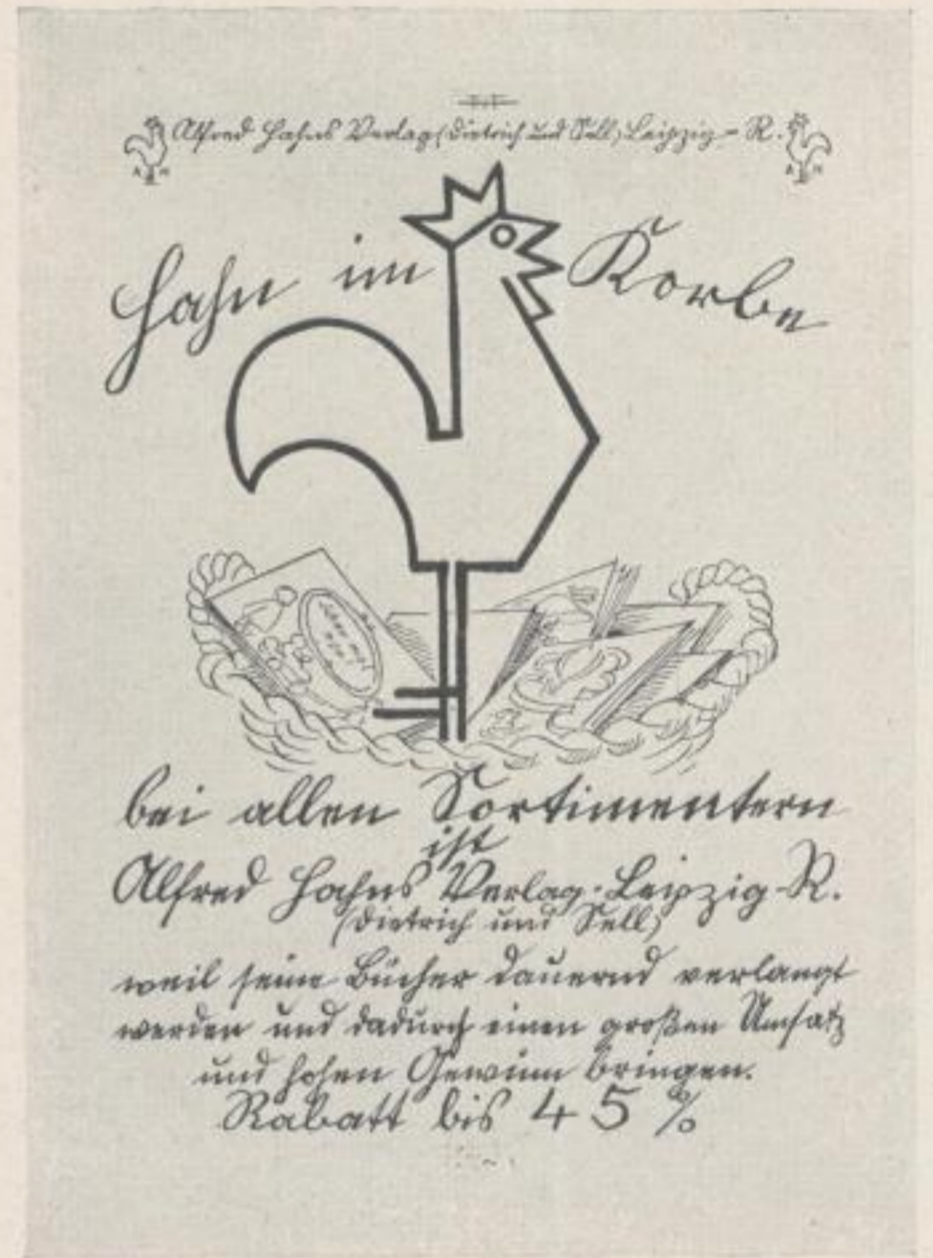 Alfred Hahns Verlag (Dietrich und Sell) Leipzig-R.
A H
A H
Hahn im Korbe
bei allen Sortimentern
ist
Alfred Hahns Verlag, Leipzig-R.
(Dietrich und Sell)
weil seine Bücher dauernd verlangt
werden und dadurch einen großen Umsatz
und hohen Gewinn bringen.
Rabatt bis 45 %